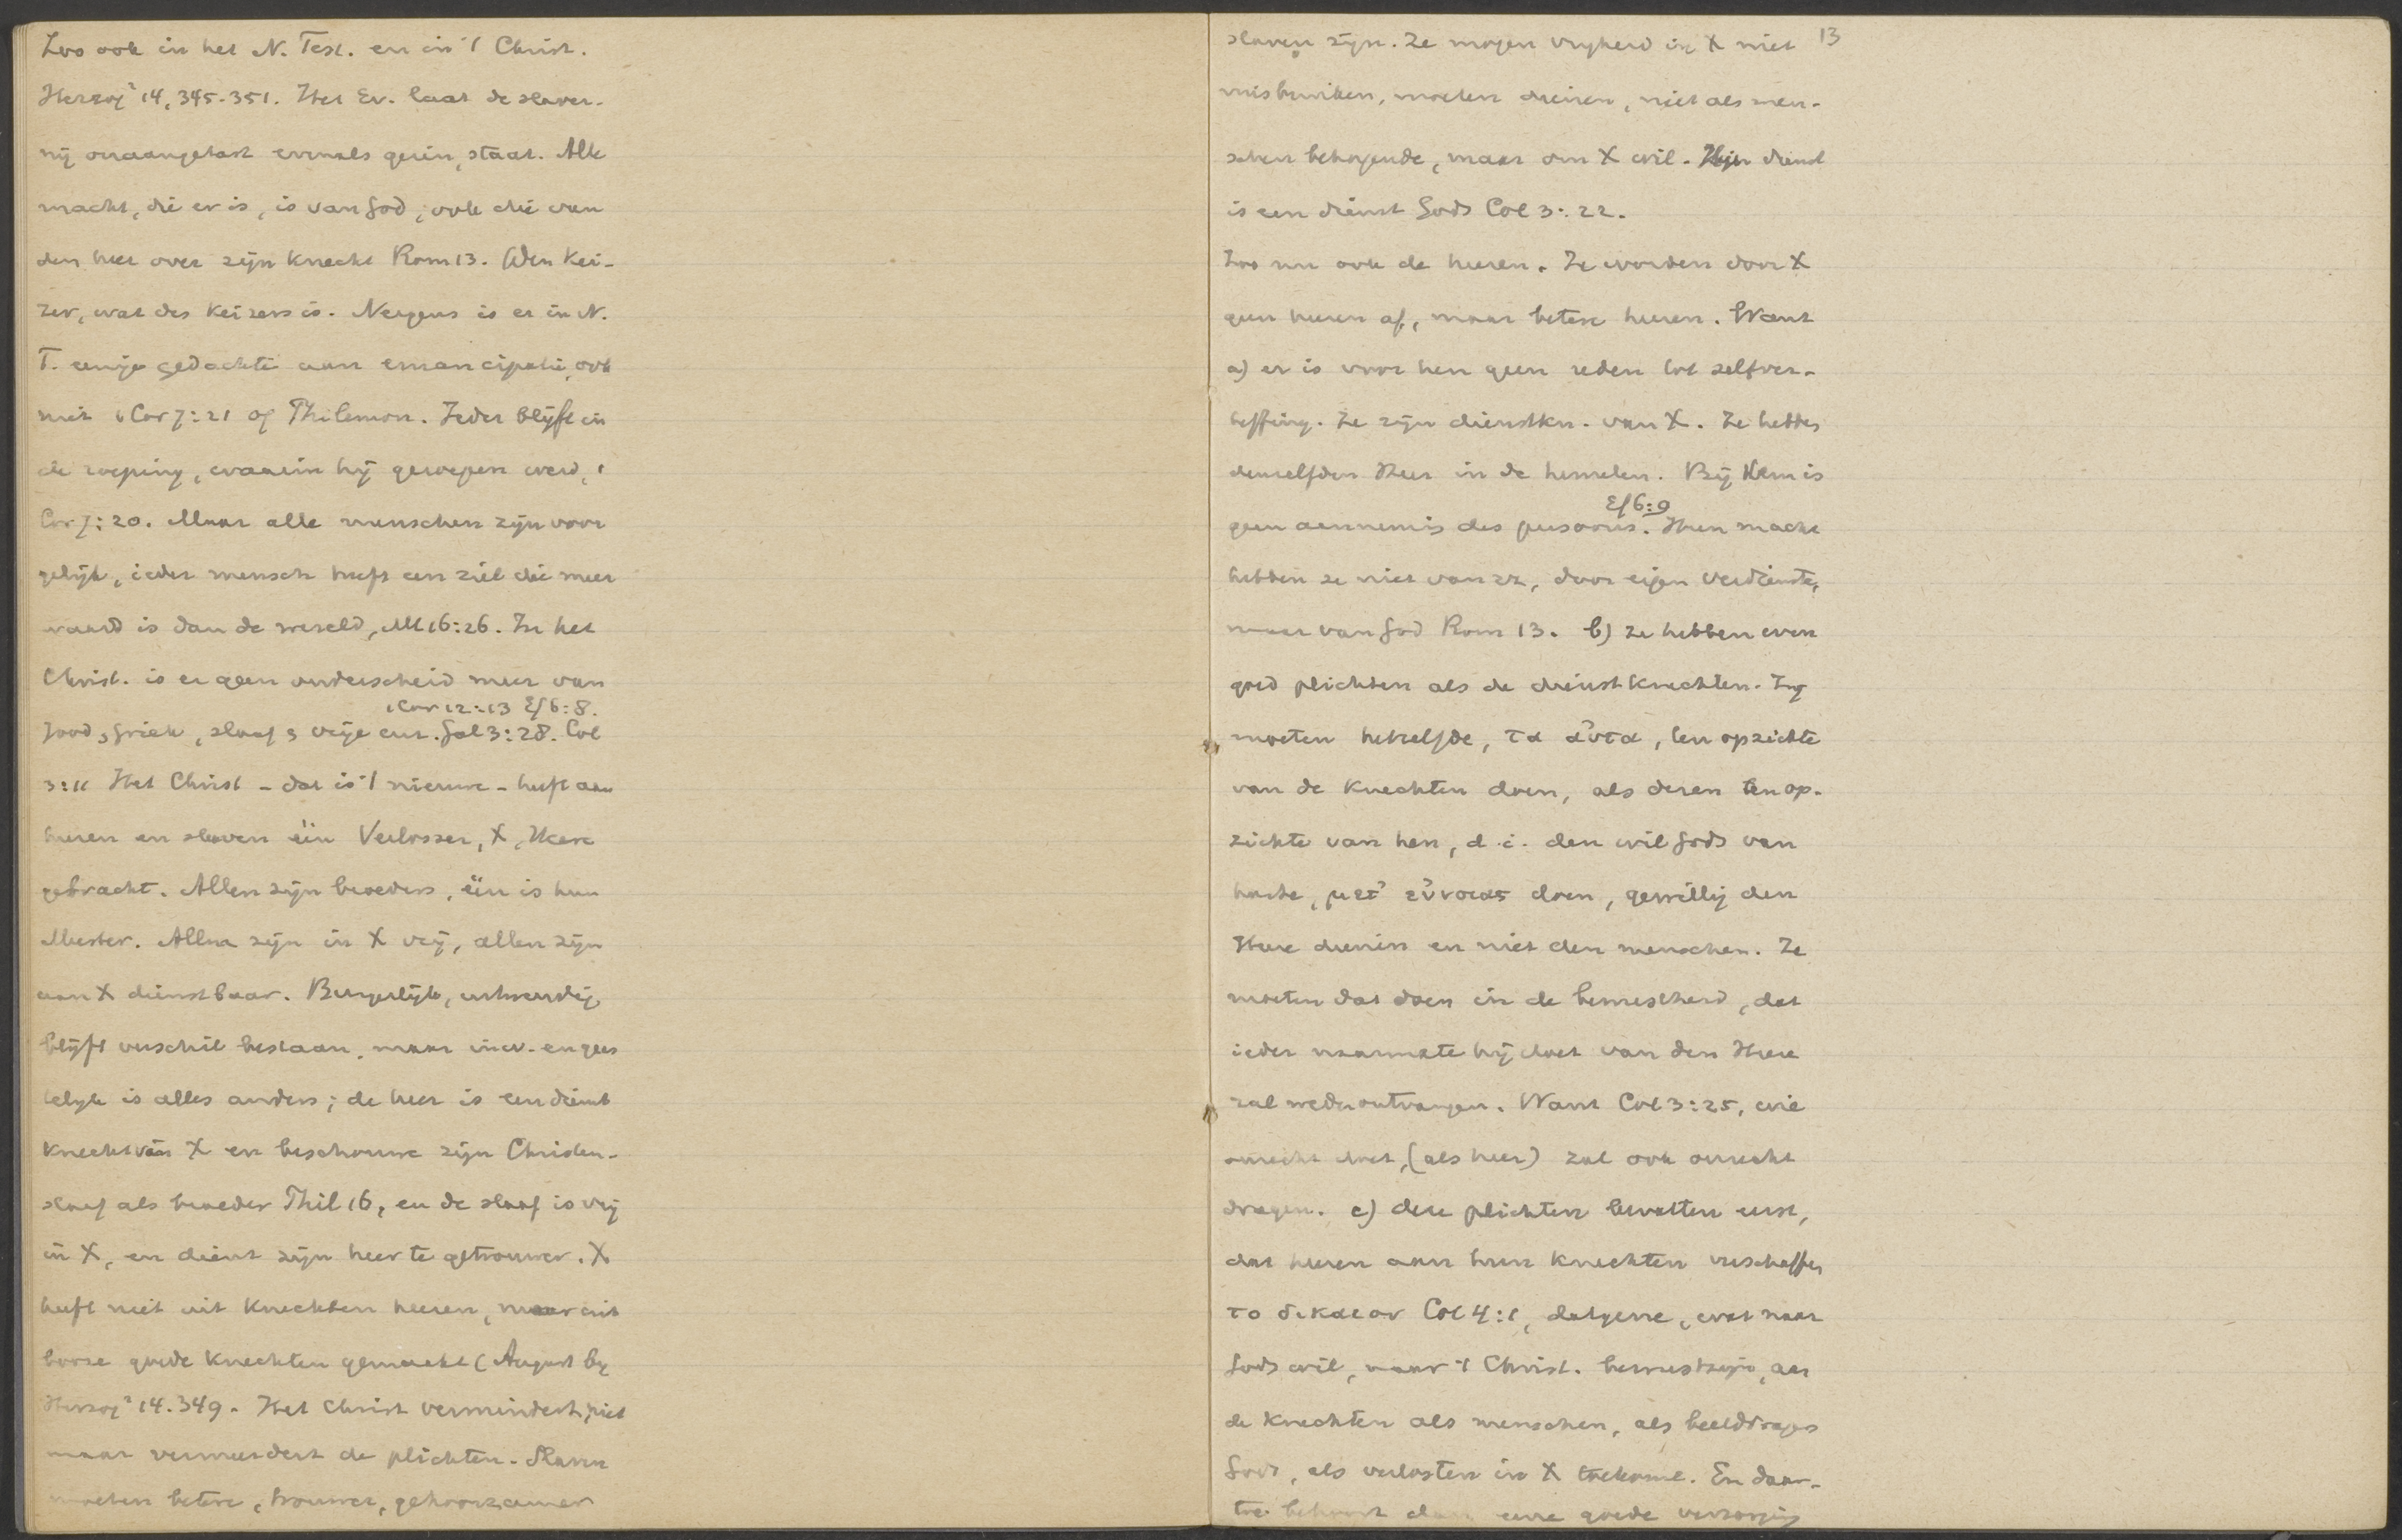 Zoo ook in het N. Test. en in 't Christ.
Herzog² 14, 345-351. Het Ev. laat de slaver-
nij onaangetast evenals gezin, staat. Alle
macht, die er is, is van God, ook die van
den heer over zijn knecht Rom 13. Den Kei-
zer, wat des Keizers is. Nergens is er in N.
T. eenige gedachte aan emancipatie, ook
niet 1 Cor 7:21 of Philemon. Ieder blijft in
de roeping, waarin hij geroepen werd, 1
Cor 7:20. Maar alle menschen zijn voor
gelijk, ieder mensch heeft een ziel die meer
waard is dan de wereld, Mt 16:26. In het
Christ. is er geen onderscheid meer van
1 Cor 12:13 Ef 6:8.
Jood, Griek, slaaf, vrije enz. Gal 3:28. Col
3:11 Het Christ - dat is 't nieuwe - heeft aan
heeren en slaven één Verlosser, X, Heere
gebracht. Allen zijn broeders, één is hun
Meester. Allen zijn in X vrij, allen zijn
aan X dienstbaar. Burgerlijk, uitwendig,
blijft verschil bestaan, maar inw. en gees
telijk is alles anders; de heer is een dienst
knecht van X en beschouwe zijn Christen-
slaaf als broeder Phil 16, en de slaaf is vrij
in X, en dient zijn heer te getrouwer. X
heeft niet uit knechten heeren, maar uit
booze goede knechten gemaakt (August by
Herzog² 14.349. Het Christ vermindert niet
maar vermeerdert de plichten. Slaven
moeten betere, trouwer, gehoorzamer
13
slaven zijn. Ze mogen vrijheid in X niet
misbruiken, moeten dienen, niet als men-
schen behagende, maar om X wil. Hun dienst
is een dienst Gods Col 3:22.
Zoo nu ook de heeren. Ze worden door X
geen heeren af, maar betere heeren. Want
a) er is voor hen geen reden tot zelfver-
heffing. Ze zijn dienstkn. van X. Ze hebben
denzelfden Heer in de hemelen. Bij Hem is
Ef 6:9
geen aanneming des persoons. Hun macht
hebben ze niet van zz, door eigen verdienste,
maar van God Rom 13. b) ze hebben even
goed plichten als de dienstknechten. Zij
moeten hetzelfde, τα αὐτα, ten opzichte
van de knechten doen, als deren ten op-
zichte van hen, d.i. den wil Gods van
harte, μετ' εὐνοιας doen, gewillig den
Heere dienen en niet den menschen. Ze
moeten dat doen in de bewustheid, dat
ieder naarmate hij doet van den Heere
zal wederontvangen. Want Col 3:25, wie
onrecht doet, (als heer) zal ook onrecht
dragen. c) deze plichten bevatten eerst,
dat heeren aan hun knechten verschaffen
το δικαιον Col 4:1, datgene, wat naar
Gods wil, naar 't Christ. bewustzijn, aan
de knechten als menschen, als beelddragers
Gods, als verlosten in X toekome. En daar-
toe behoort dan eene goede verzorging